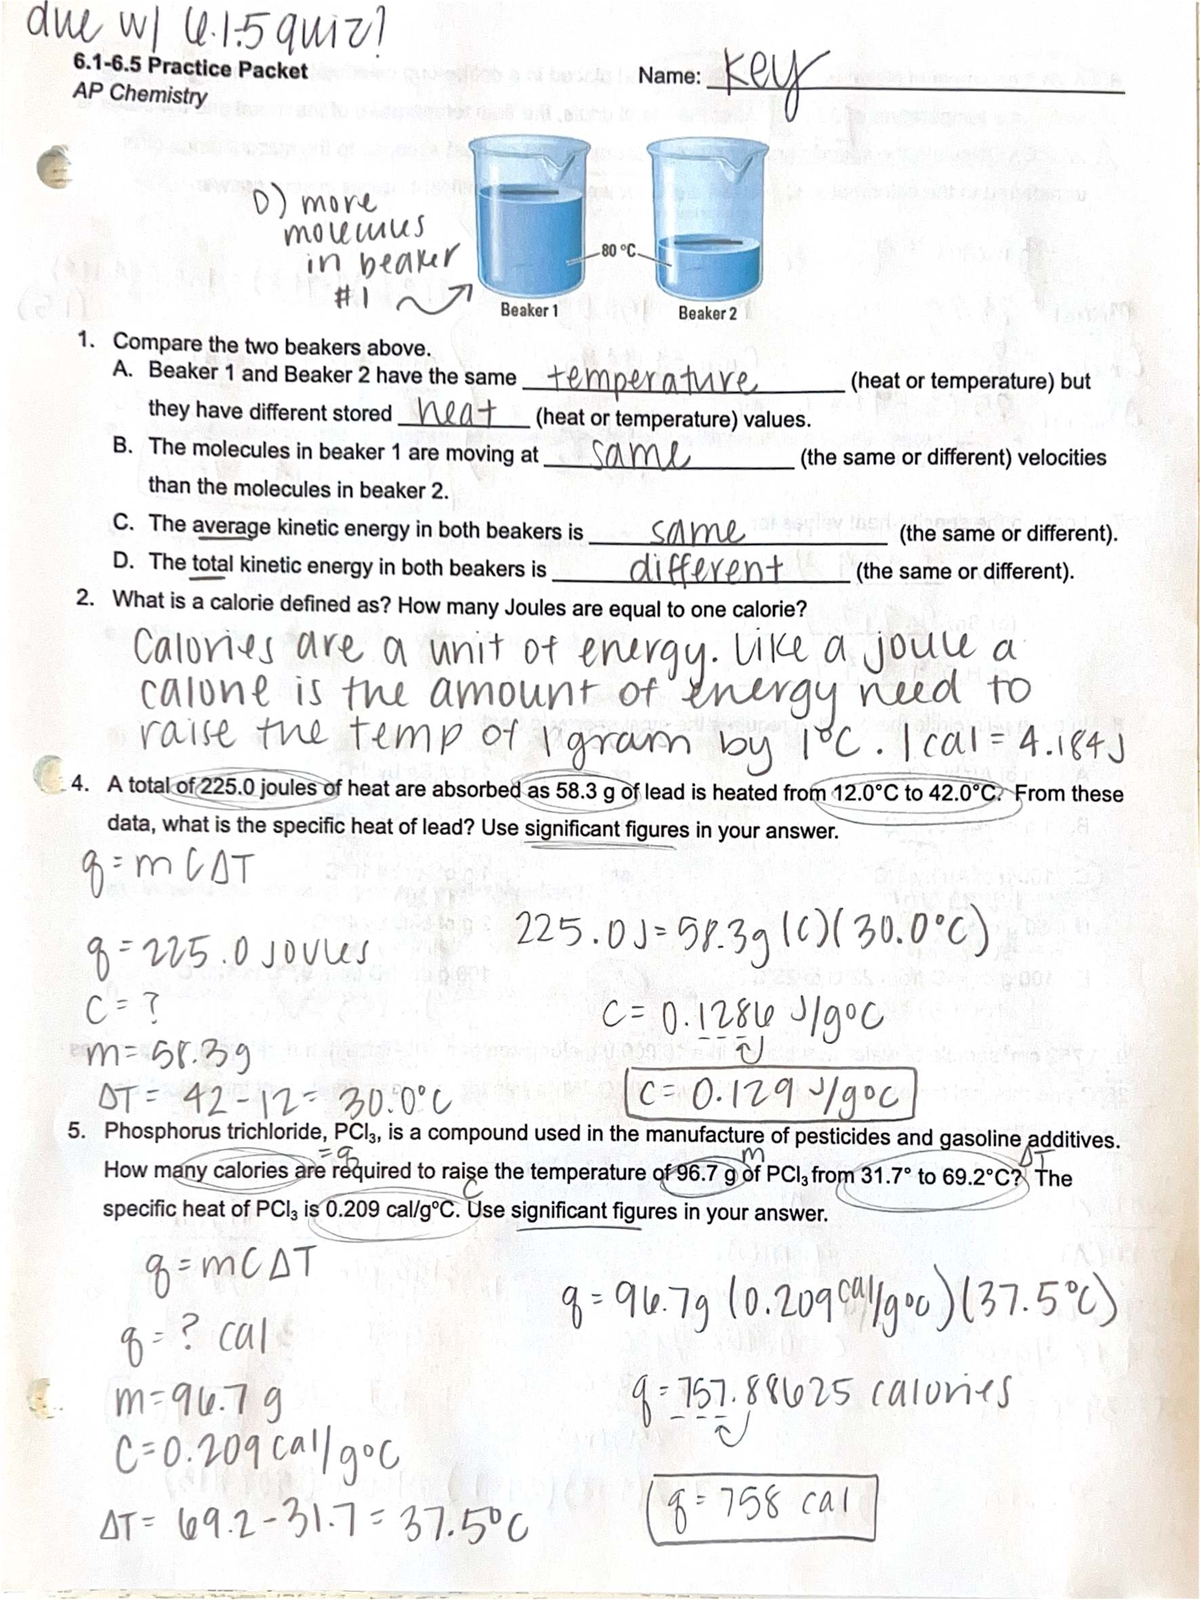 due w/ 6.1-5 quiz!
6.1-6.5 Practice Packet
Name: Key
AP Chemistry
D) more
molecules
in beaker
#1
80 °C
Beaker 1
Beaker 2
1. Compare the two beakers above.
A. Beaker 1 and Beaker 2 have the same temperature (heat or temperature) but
they have different stored heat (heat or temperature) values.
B. The molecules in beaker 1 are moving at same (the same or different) velocities
than the molecules in beaker 2.
C. The average kinetic energy in both beakers is same (the same or different).
D. The total kinetic energy in both beakers is different (the same or different).
2. What is a calorie defined as? How many Joules are equal to one calorie?
Calories are a unit of energy. Like a joule a
calorie is the amount of energy need to
raise the temp of 1 gram by 1°C. 1 cal = 4.184J
4. A total of 225.0 joules of heat are absorbed as 58.3 g of lead is heated from 12.0°C to 42.0°C. From these
data, what is the specific heat of lead? Use significant figures in your answer.
q = mCΔT
q = 225.0 Joules
225.0J = 58.3g (C)(30.0°C)
C = ?
C = 0.1286 J/g°C
m = 58.3g
ΔT = 42-12 = 30.0°C
C = 0.129 J/g°C
5. Phosphorus trichloride, PCl₃, is a compound used in the manufacture of pesticides and gasoline additives.
=q m ΔT
How many calories are required to raise the temperature of 96.7 g of PCl₃ from 31.7° to 69.2°C? The
C
specific heat of PCl₃ is 0.209 cal/g°C. Use significant figures in your answer.
q = mCΔT
q = 96.7g (0.209 cal/g°C)(37.5°C)
q = ? cal
m = 96.7 g
q = 757.88625 calories
C = 0.209 cal/g°C
q = 758 cal
ΔT = 69.2 - 31.7 = 37.5°C